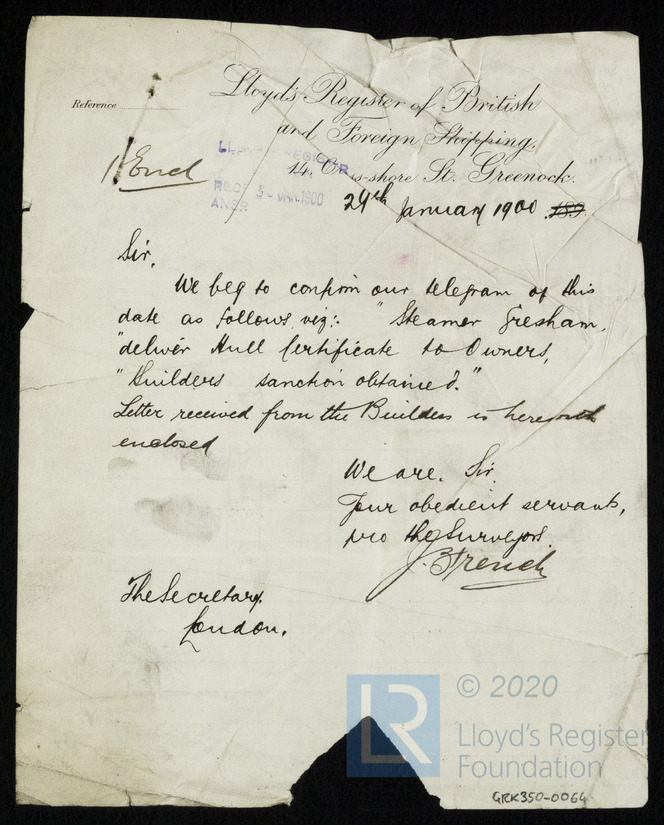 Lloyd's Register of British
and Foreign Shipping.
Reference
14, Cross-shore St. Greenock.
1 Encl
LLOYD'S REGISTER
REC'D 3- JAN. 1900
ANSR
29th January 1900 189
Sir,
We beg to confirm our telegram of this
date as follows, viz:. "Steamer Gresham,
"deliver Hull Certificate to Owners,
"Builders sanction obtained."
Letter received from the Builders is herewith
enclosed
We are, Sir,
Your obedient servants,
pro the Surveyors
J. French
The Secretary,
London.
LR
© 2020
Lloyd's Register
Foundation
GRK350-0064